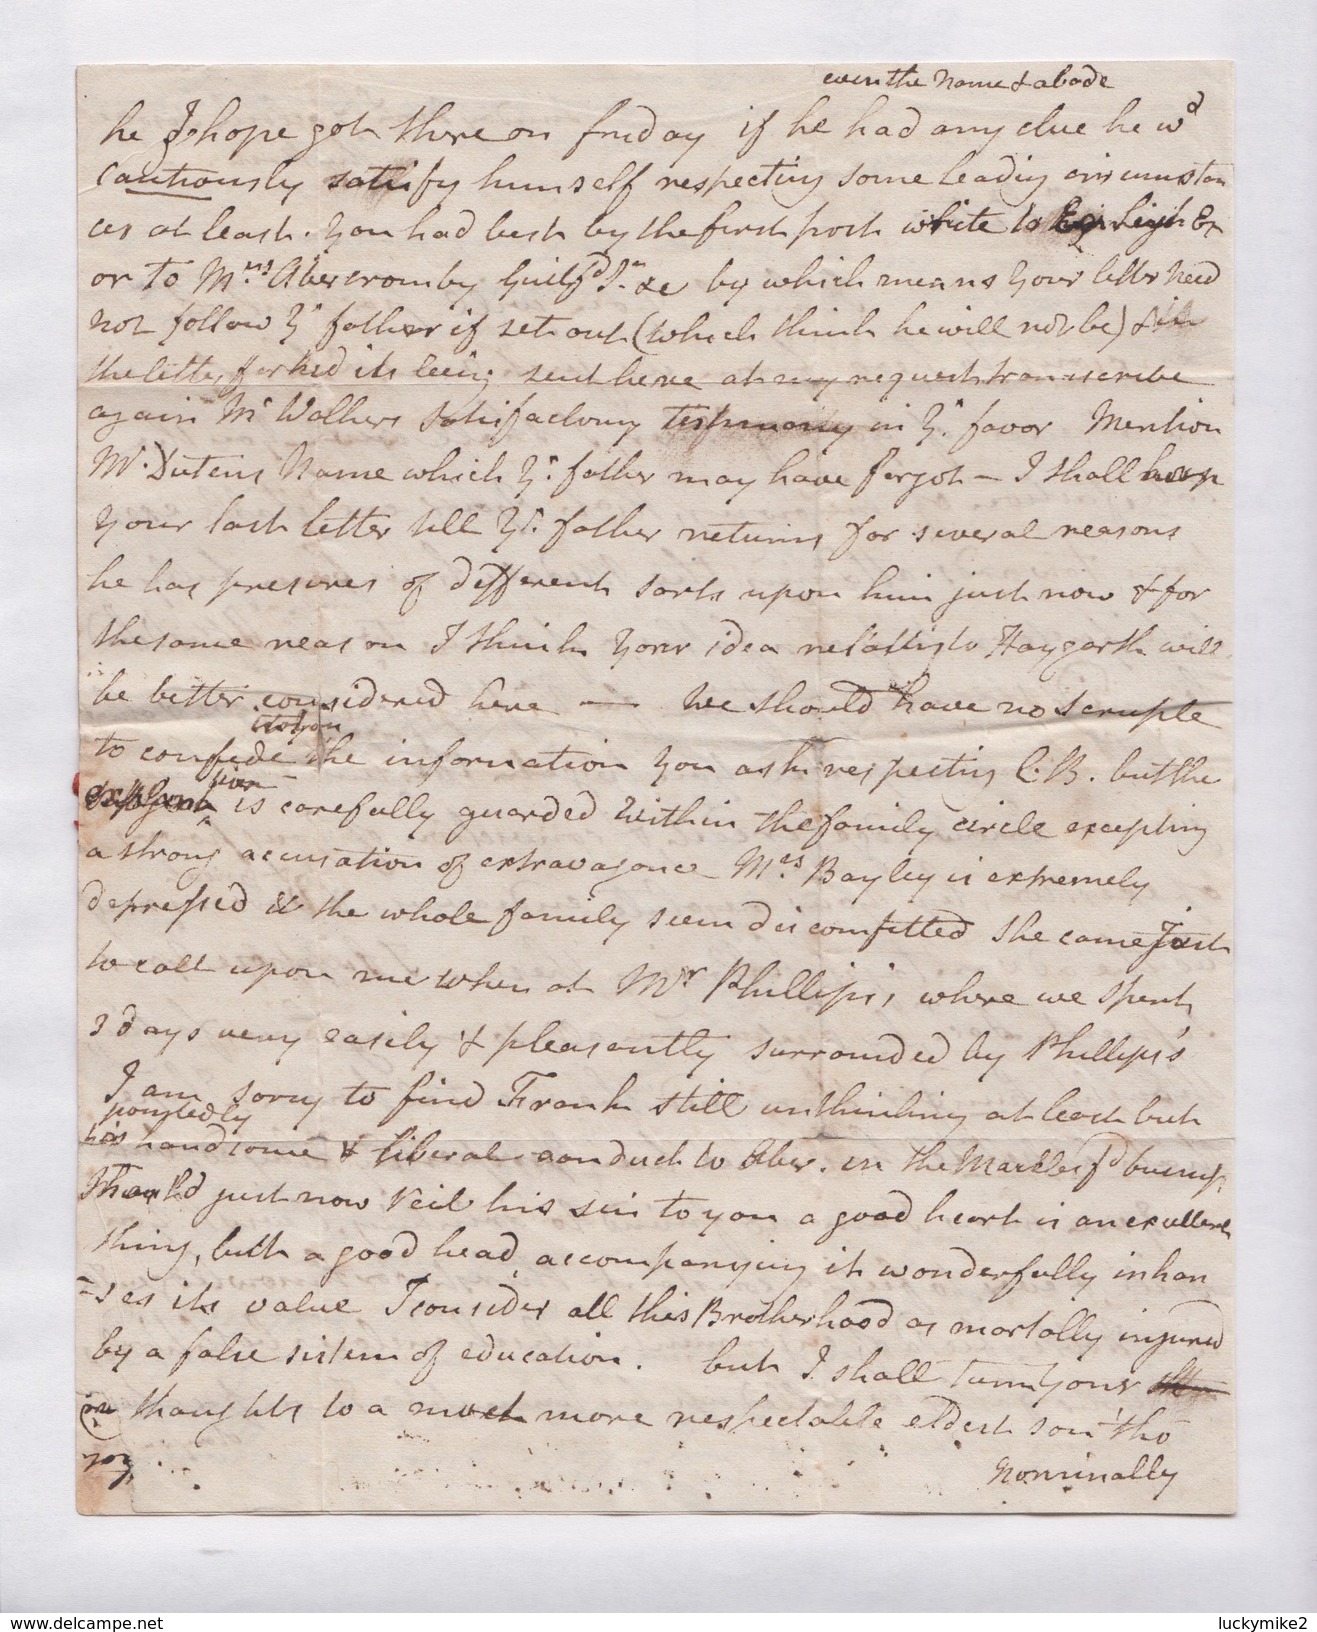 even the Name & abode
he I hope got there on friday if he had any clue he wd
cautiously satisfy himself respecting some leading circumstan
ces at least. You had best by the first post write to
or to Mrs Abercromby &c by which means your letter need
not follow yr father if set out (which think he will not be) &
the letter its being sent here at my request transcribe
again Mr Walkers satisfactory testimony in yr favor Mention
Mr. Dutens Name which yr father may have forgot — I shall keep
your last letter till yr father returns for several reasons
he has presures of different sorts upon him just now & for
the same reason I think your idea relating to Haygarth will
be better considered here — we should have no scruple
to you
to confide the information you ask respecting C:B. but the
is carefully guarded within the family circle excepting
a strong accusation of extravagance Mrs Bayley is extremely
depressed & the whole family seem discomfitted she came just
to call upon me when at Mr Phillips's, where we spent
3 days very easily & pleasantly surrounded by Phillips's
I am sorry to find Frank still unthinking at least but
his handsome & liberal conduct to Aber. in the
just now veil his sin to you a good heart is an excellent
thing, but a good head accompanying it wonderfully inhan
-ses its value I consider all this Brotherhood as mortally injured
by a false sistem of education. but I shall turn your
thoughts to a much more respectable eldest son tho
Nominally
www.delcampe.net
luckymike2